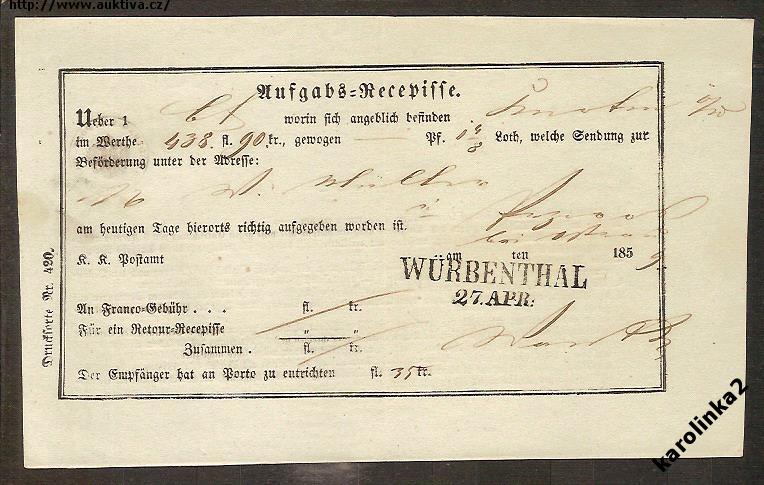 http://www.auktiva.cz/
Aufgabs=Recepisse.
Ueber 1 worin sich angeblich befinden
im Werthe 438 fl. 90 kr., gewogen — Pf. Loth, welche Sendung zur
Beförderung unter der Adresse:
Müller
am heutigen Tage hierorts richtig aufgegeben worden ist.
K. K. Postamt am ten 1859
WÜRBENTHAL
27. APR:
An Franco=Gebühr . . . fl. kr.
Für ein Retour=Recepisse „ „
Zusammen . fl. kr.
Der Empfänger hat an Porto zu entrichten fl. 35 kr.
Drucksorte Nr. 420.
karolinka2